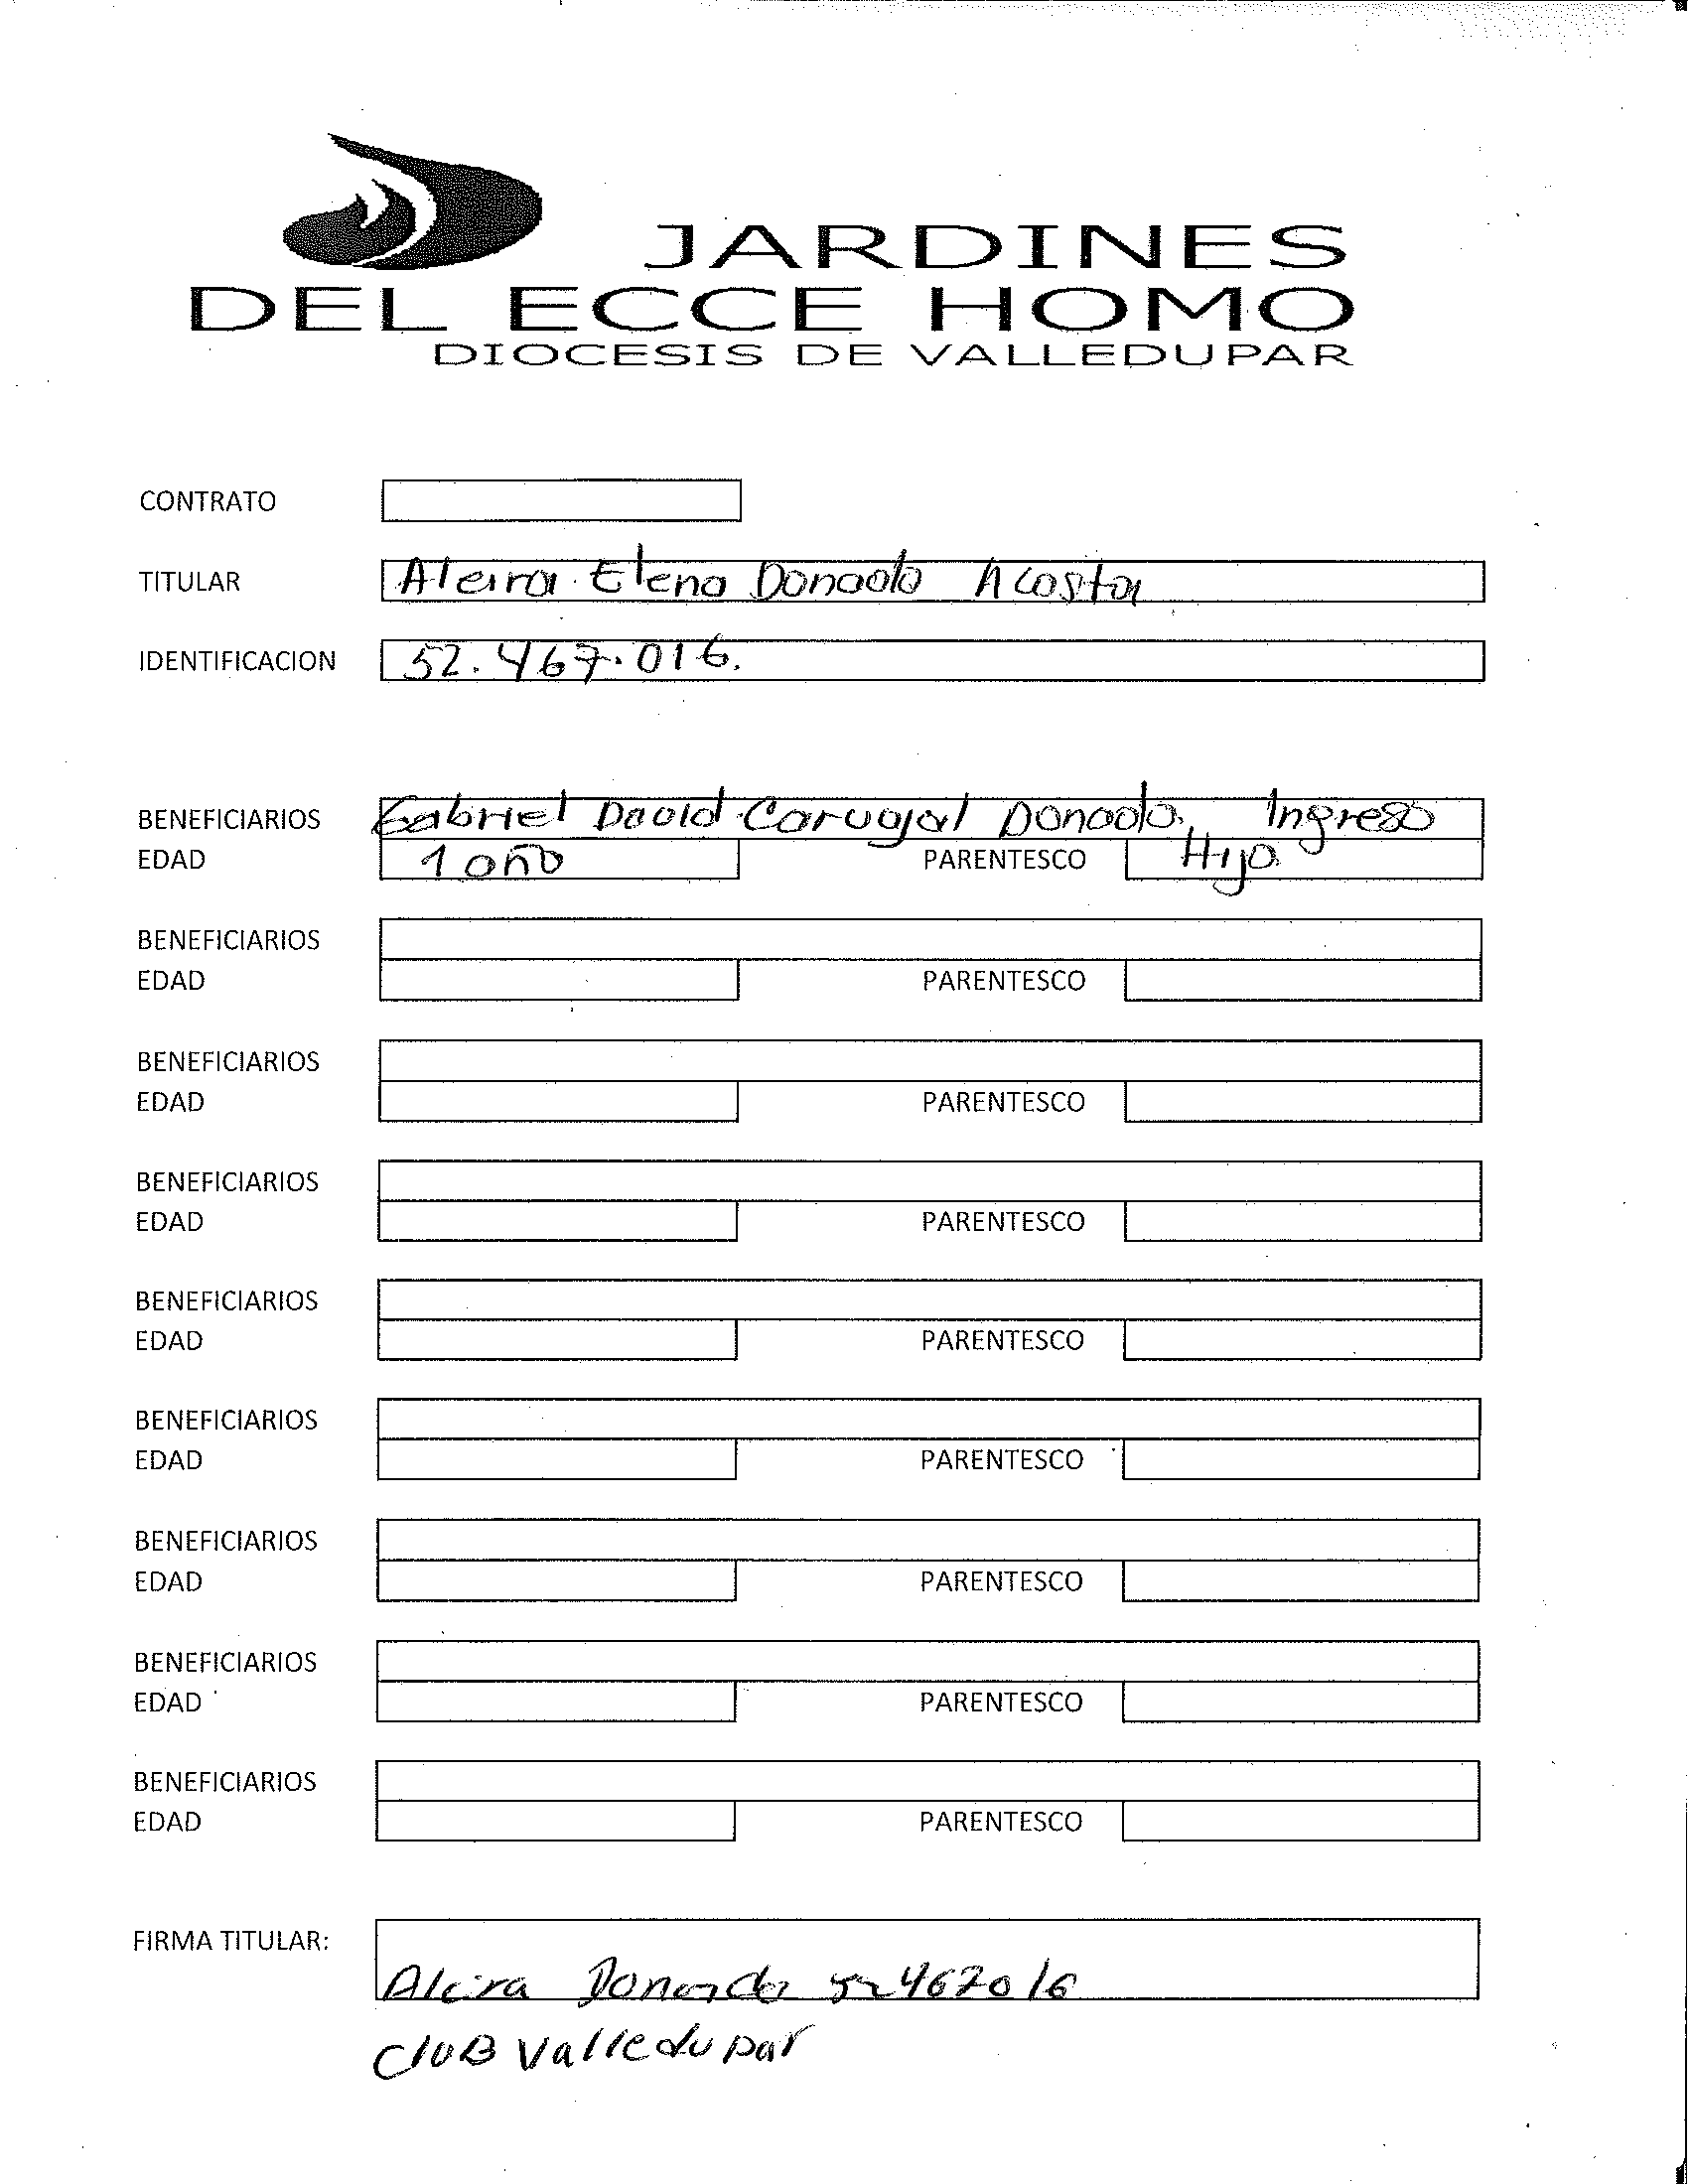 JARDINES
DEL ECCE HOMO
DIOCESIS DE VALLEDUPAR
CONTRATO
TITULAR Alcira Elena Donado Acosta
IDENTIFICACION 52.467.016.
BENEFICIARIOS Gabriel David Carvajal Donado. Ingreso
EDAD 1 año PARENTESCO Hijo
BENEFICIARIOS
EDAD PARENTESCO
BENEFICIARIOS
EDAD PARENTESCO
BENEFICIARIOS
EDAD PARENTESCO
BENEFICIARIOS
EDAD PARENTESCO
BENEFICIARIOS
EDAD PARENTESCO
BENEFICIARIOS
EDAD PARENTESCO
BENEFICIARIOS
EDAD PARENTESCO
BENEFICIARIOS
EDAD PARENTESCO
FIRMA TITULAR:
Alcira Donado 52467016
Club Valledupar